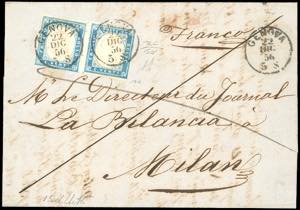 GENOVA
22
DIC
56
5 S
GENOVA
22
DIC
56
5 S
Franco
GENOVA
22
DIC
56
5 S
M. le Directeur du Journal
La Bilancia
Milan